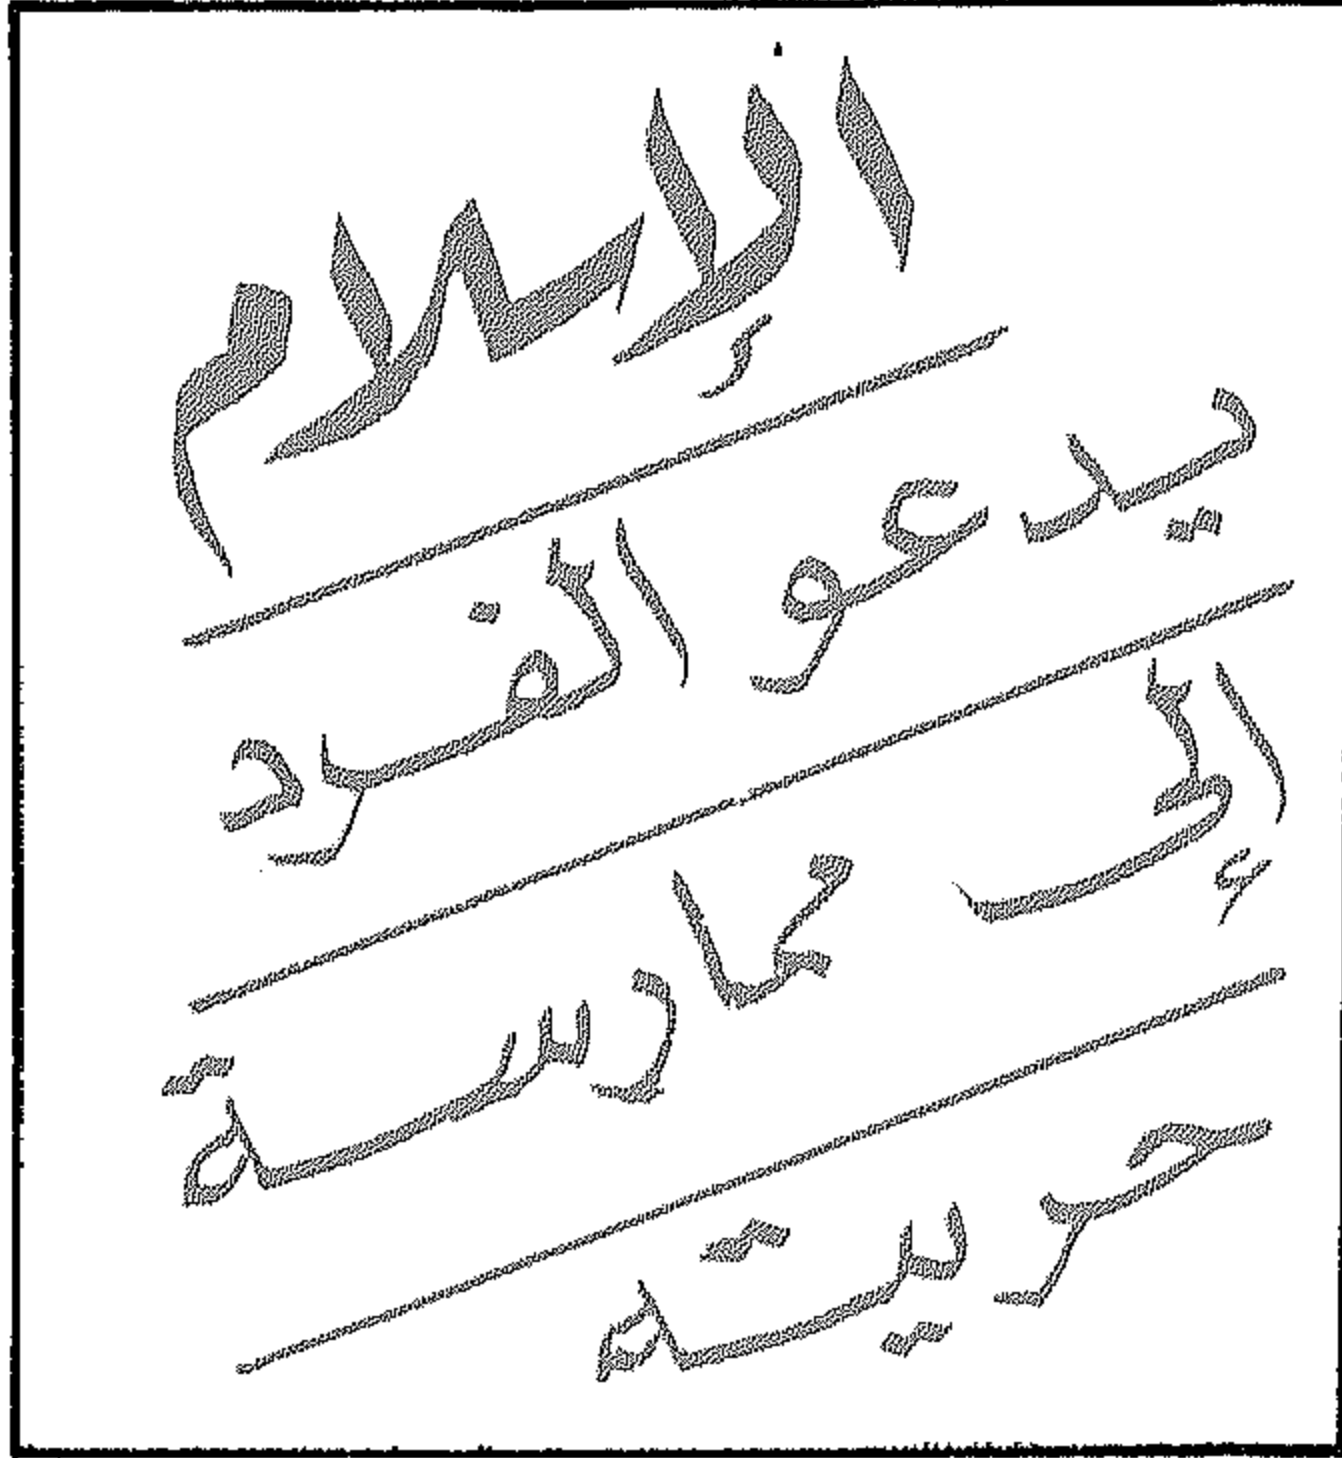 الإسلام
يدعو الفرد
إلى ممارسة
حرية